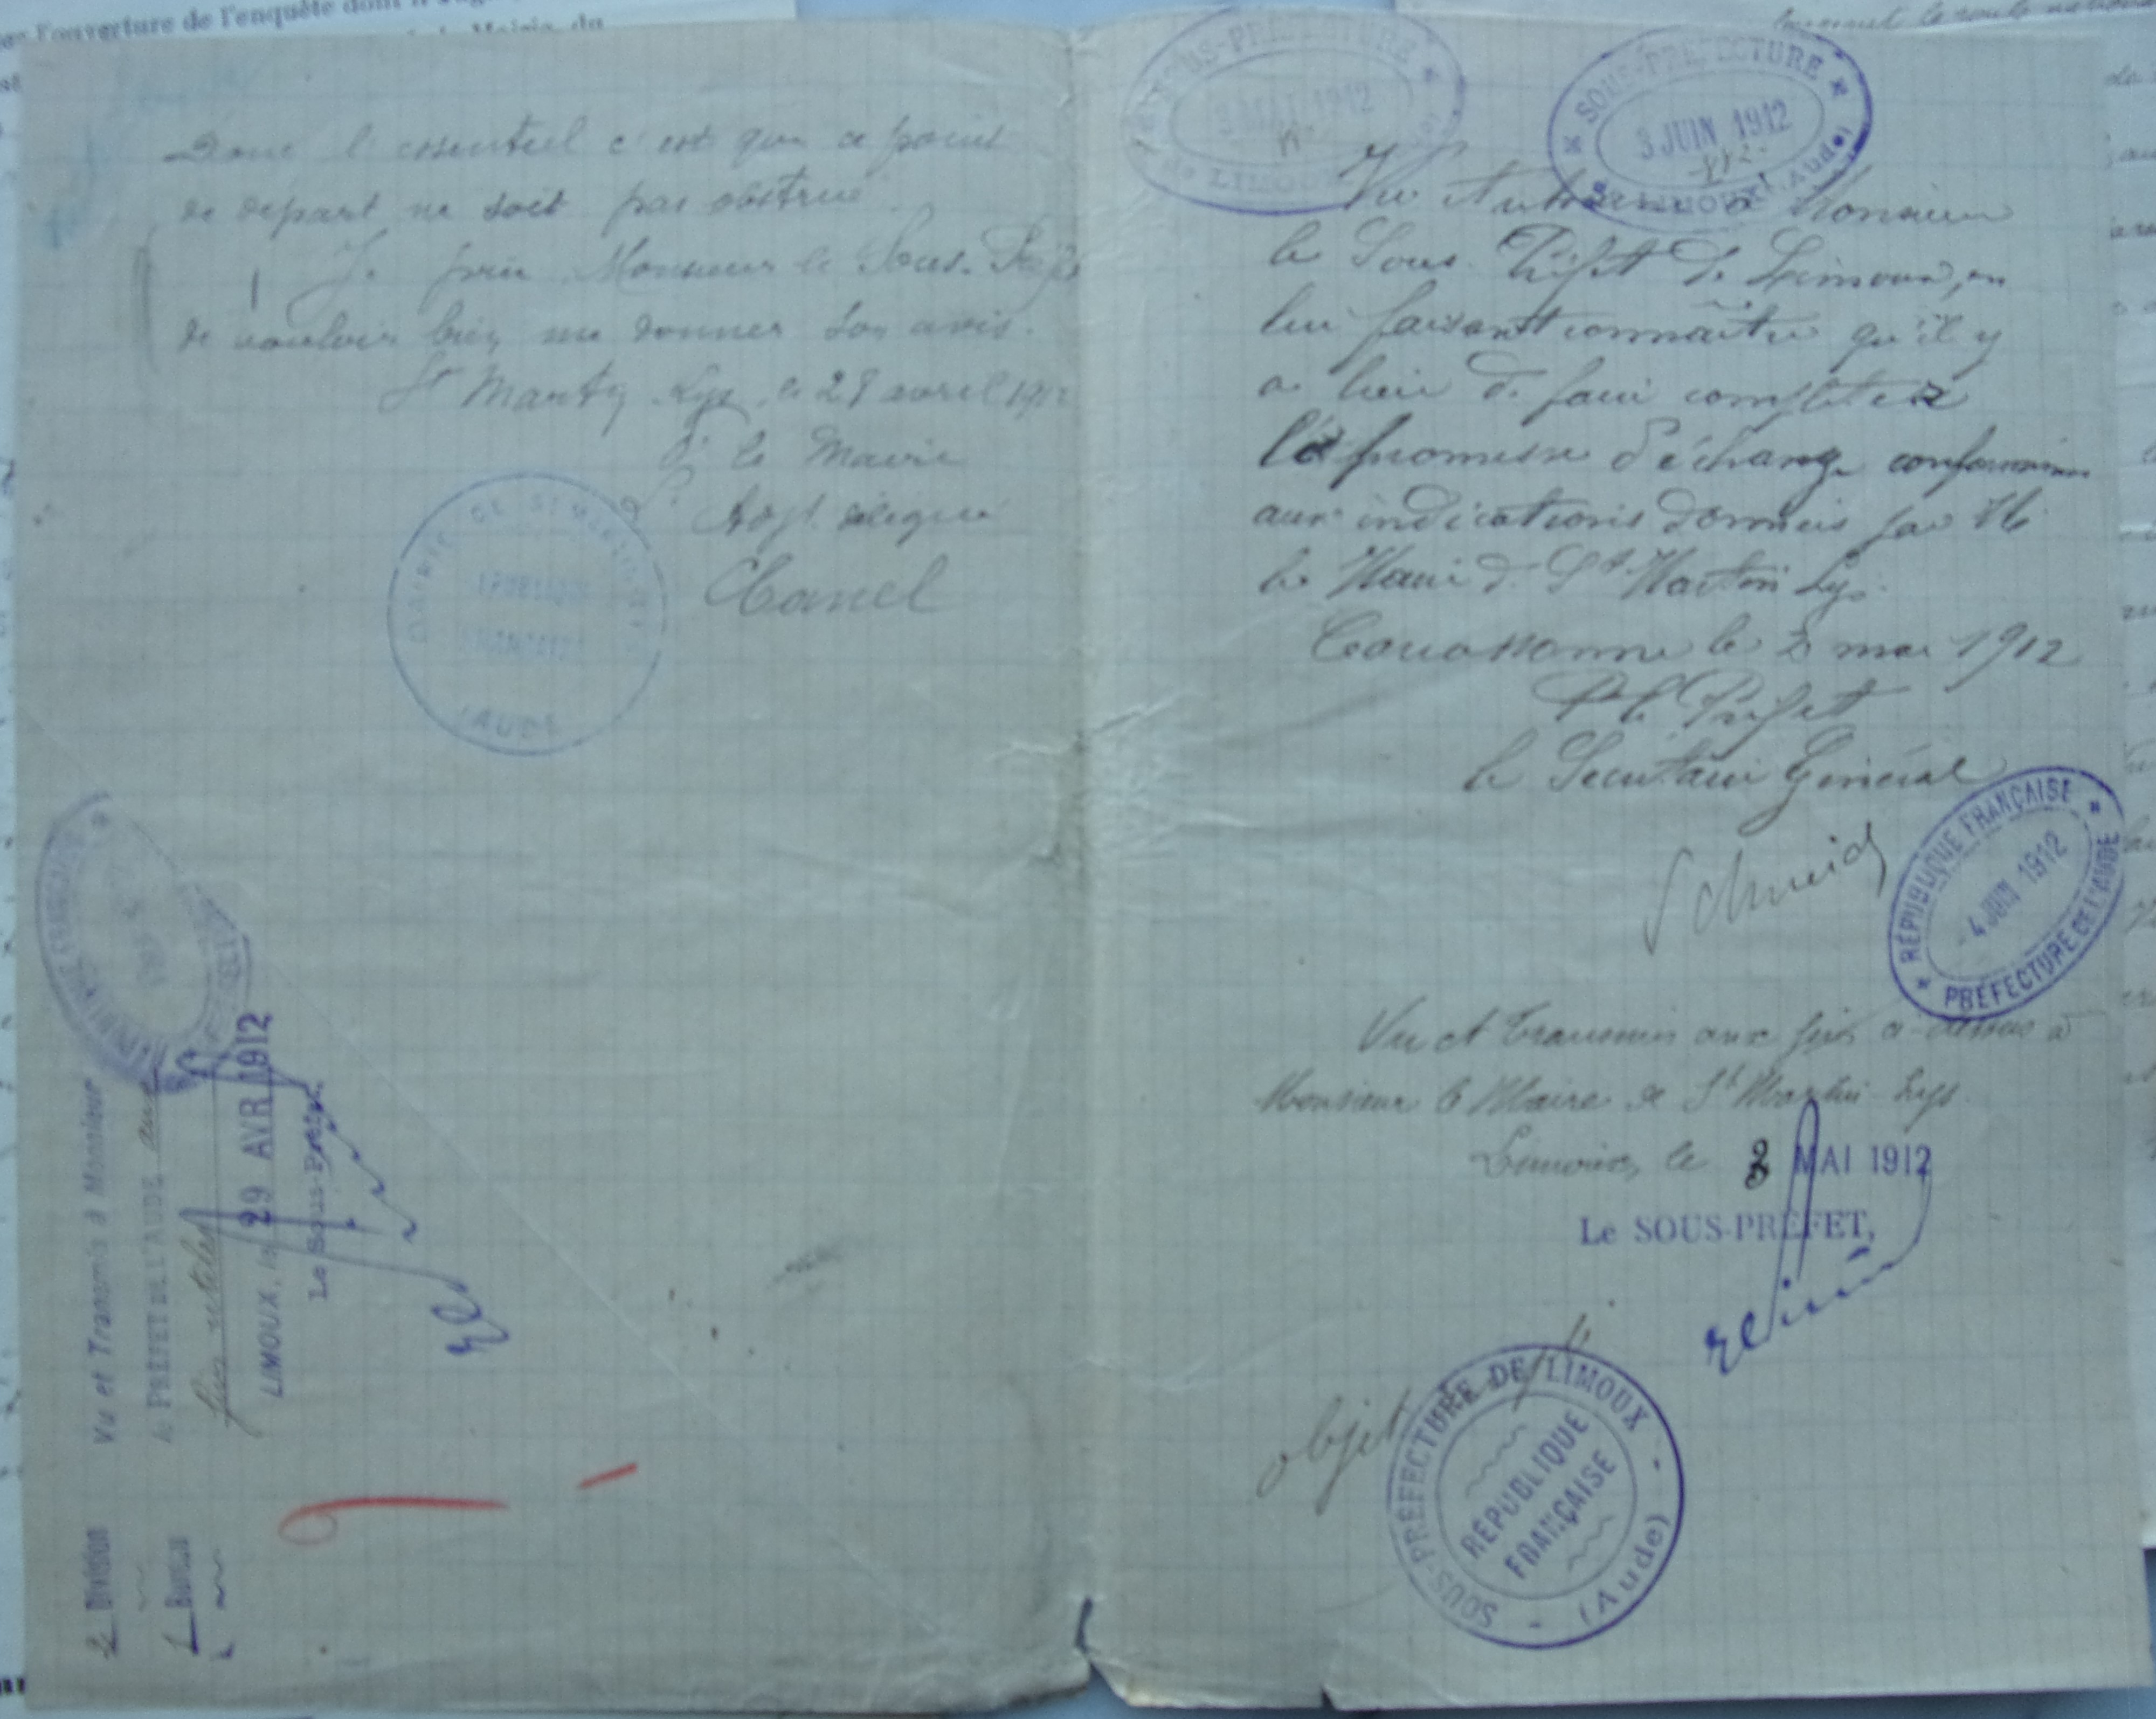 Donc l'essentiel c'est que ce point
de départ ne soit pas obstrué.
Je prie Monsieur le Sous-Préfet
de vouloir bien me donner son avis.
St Martin-Lys, le 28 avril 1912
Pr le Maire
Adjt délégué
Canel
MAIRIE DE ST MARTIN-LYS
RÉPUBLIQUE
FRANÇAISE
(AUDE)
Vu et Transmis à Monsieur
le PRÉFET DE L'AUDE aux
fins utiles
LIMOUX, le 29 AVR 1912
Le Sous-Préfet,
2e Division
1 Bureau
SOUS-PRÉFECTURE
3 MAI 1912
de LIMOUX
SOUS-PRÉFECTURE
3 JUIN 1912
de LIMOUX (Aude)
Vu et retourné à Monsieur
le Sous-Préfet de Limoux, en
lui faisant connaître qu'il y
a lieu de faire compléter
la promesse d'échange conformément
aux indications données par M
le Maire de St Martin Lys.
Carcassonne le 2 mai 1912
Pr le Préfet
le Secrétaire Général
RÉPUBLIQUE FRANÇAISE
4 JUIN 1912
PRÉFECTURE DE L'AUDE
Vu et transmis aux fins ci-dessus à
Monsieur le Maire de St Martin-Lys.
Limoux, le 3 MAI 1912
Le SOUS-PRÉFET,
objet
SOUS-PRÉFECTURE DE LIMOUX
RÉPUBLIQUE
FRANÇAISE
(Aude)